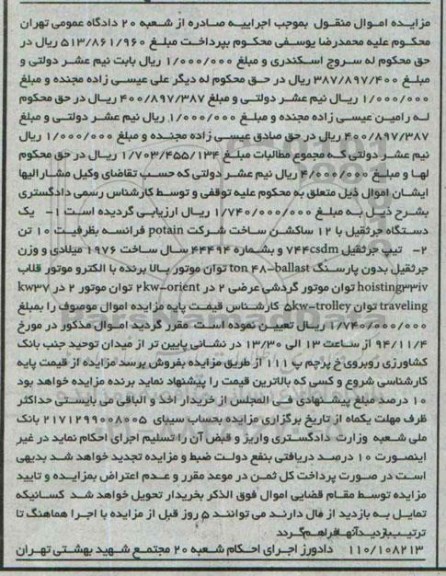 مزایده اموال منقول بموجب اجراییه صادره از شعبه ۲۰ دادگاه عمومی تهران
محکوم علیه محمدرضا یوسفی محکوم بپرداخت مبلغ ۵۱۳/۸۶۱/۹۶۰ ریال در
حق محکوم له سروج اسکندری و مبلغ ۱/۰۰۰/۰۰۰ ریال بابت نیم عشر دولتی و
مبلغ ۳۸۷/۸۹۷/۴۰۰ ریال در حق محکوم له دیگر علی عیسی زاده مجنده و مبلغ
۱/۰۰۰/۰۰۰ ریال نیم عشر دولتی و مبلغ ۴۰۰/۸۹۷/۳۸۷ ریال در حق محکوم
له رامین عیسی زاده مجنده و مبلغ ۱/۰۰۰/۰۰۰ ریال نیم عشر دولتی و مبلغ
۴۰۰/۸۹۷/۳۸۷ ریال در حق صادق عیسی زاده مجنده و مبلغ ۱/۰۰۰/۰۰۰ ریال
نیم عشر دولتی که مجموع مطالبات مبلغ ۱/۷۰۳/۴۵۵/۱۳۴ ریال در حق محکوم
لها و مبلغ ۴/۰۰۰/۰۰۰ ریال نیم عشر دولتی که حسب تقاضای وکیل مشارالیها
ایشان اموال ذیل متعلق به محکوم علیه توقفی و توسط کارشناس رسمی دادگستری
بشرح ذیل به مبلغ ۱/۷۴۰/۰۰۰/۰۰۰ ریال ارزیابی گردیده است ۱- یک
دستگاه جرثقیل با ۱۲ ساکشن ساخت شرکت potain فرانسه بظرفیت ۱۰ تن
۲- تیپ جرثقیل ۷۴۴csdm و بشماره ۴۴۴۹۴ سال ساخت ۱۹۷۶ میلادی و وزن
جرثقیل بدون پارسنگ ton ۴۸-ballast توان موتور بالا برنده با الکترو موتور قلاب
hoisting۳۳iv توان موتور گردشی عرضی ۲ در ۲kw-orient توان موتور ۲ در kw۳۷
traveling توان ۵kw-trolley کارشناس قیمت پایه مزایده اموال موصوف را بمبلغ
۱/۷۴۰/۰۰۰/۰۰۰ ریال تعیین نموده است مقرر گردید اموال مذکور در مورخ
۹۴/۱۱/۴ از ساعت ۱۳ الی ۱۳/۳۰ در نشانی پایین تر از میدان توحید جنب بانک
کشاورزی روبروی خ پرچم پ ۱۱۱ از طریق مزایده بفروش برسد مزایده از قیمت پایه
کارشناسی شروع و کسی که بالاترین قیمت را پیشنهاد نماید برنده مزایده خواهد بود
۱۰ درصد مبلغ پیشنهادی فی المجلس از خریدار اخذ و الباقی می بایستی حداکثر
ظرف مهلت یکماه از تاریخ برگزاری مزایده بحساب سیبای ۲۱۷۱۲۹۹۰۰۸۲۰۰۵ بانک
ملی شعبه وزارت دادگستری واریز و قبض آن را تسلیم اجرای احکام نماید در غیر
اینصورت ۱۰ درصد دریافتی بنفع دولت ضبط و مزایده تجدید خواهد شد بدیهی
است در صورت پرداخت کل ثمن در موعد مقرر و عدم اعتراض بمزایده و تایید
مزایده توسط مقام قضایی اموال فوق الذکر بخریدار تحویل خواهد شد کسانیکه
تمایل به بازدید از مال دارند می توانند ۵ روز قبل از مزایده با اجرا هماهنگ تا
ترتیب بازدید آنها فراهم گردد
۱۱۰/۱۰۸۲۱۳ دادورز اجرای احکام شعبه ۲۰ مجتمع شهید بهشتی تهران